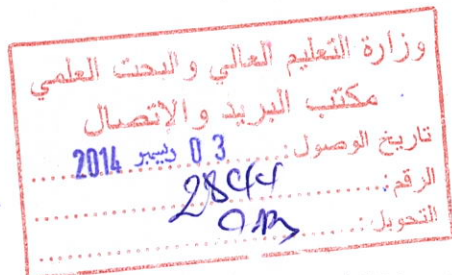 وزارة التعليم العالي والبحث العلمي
مكتب البريد والإتصال
تاريخ الوصول: 03 ديسمبر 2014
الرقم: 2844
التحويل: